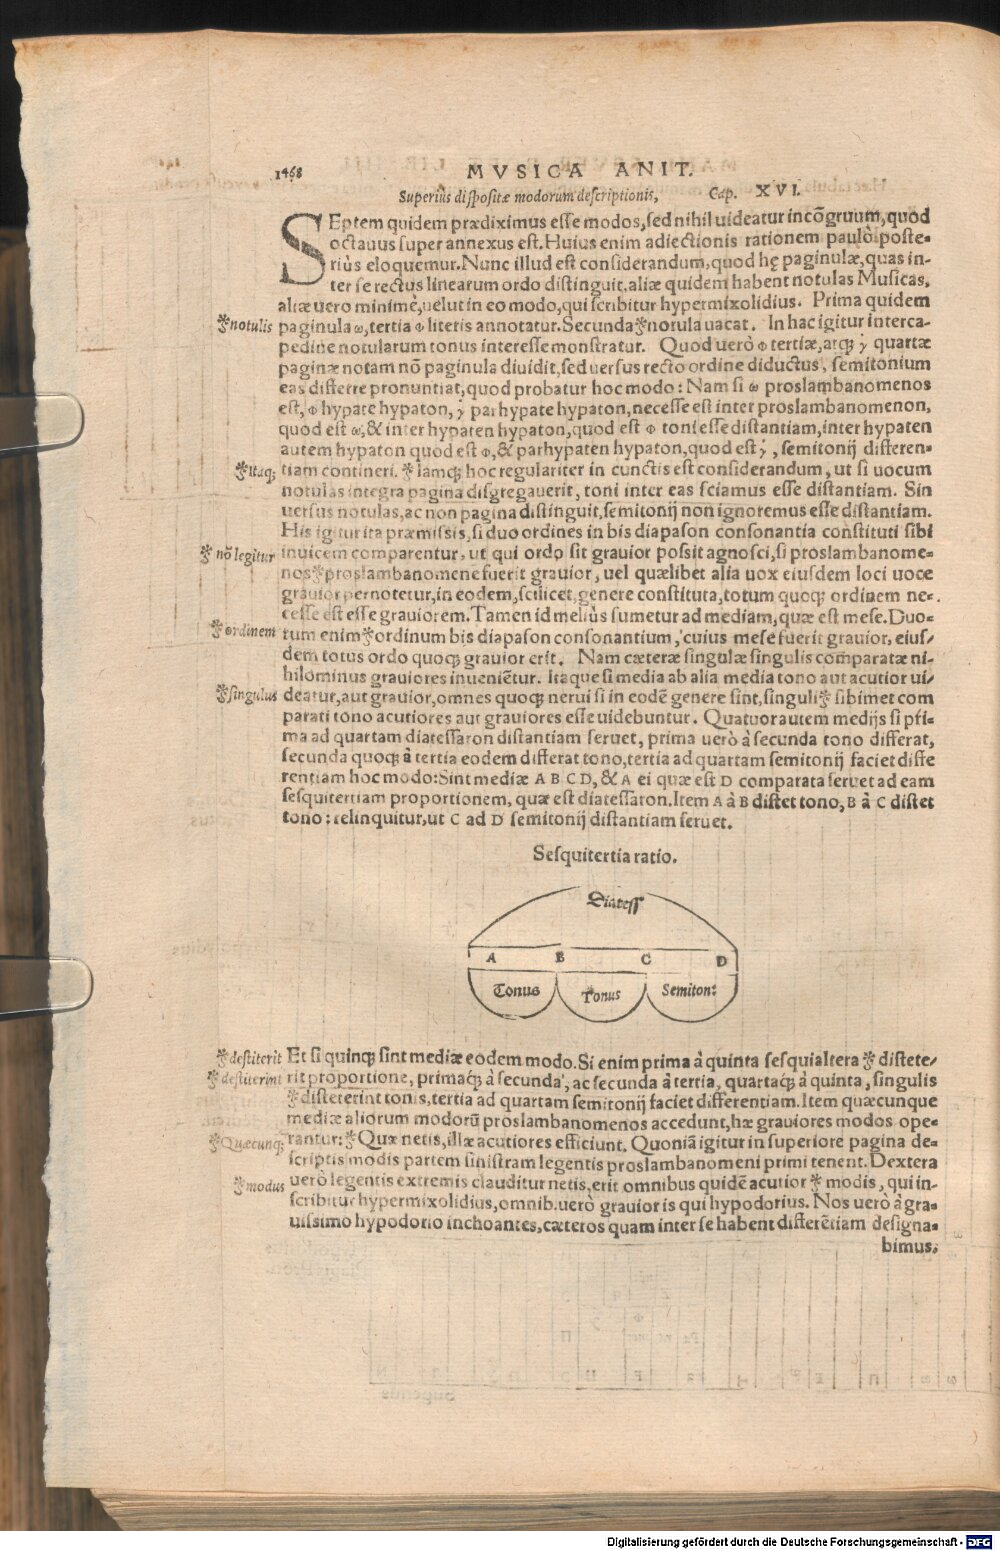 1468 MVSICA ANIT.
Superiùs dispositæ modorum descriptionis, Cap. XVI.
SEptem quidem prædiximus esse modos, sed nihil uideatur incõgruum, quod
octauus super annexus est. Huius enim adiectionis rationem paulò poste-
riùs eloquemur. Nunc illud est considerandum, quod hę paginulæ, quas in-
ter se rectus linearum ordo distinguit, aliæ quidem habent notulas Musicas,
aliæ uero minimè, uelut in eo modo, qui scribitur hypermixolidius. Prima quidem
notulis
paginula ω, tertia Φ literis annotatur. Secunda notula uacat. In hac igitur interca-
pedine notularum tonus interesse monstratur. Quod uerò Φ tertiæ, atq; γ quartæ
paginæ notam nõ paginula diuidit, sed uersus recto ordine diductus, semitonium
eas differre pronuntiat, quod probatur hoc modo: Nam si ω proslambanomenos
est, Φ hypate hypaton, γ parhypate hypaton, necesse est inter proslambanomenon,
quod est ω, & inter hypaten hypaton, quod est Φ toni esse distantiam, inter hypaten
autem hypaton quod est Φ, & parhypaten hypaton, quod est γ, semitonij differen-
Itaq;
tiam contineri. Iamq; hoc regulariter in cunctis est considerandum, ut si uocum
notulas integra pagina disgregauerit, toni inter eas sciamus esse distantiam. Sin
uersus notulas, ac non pagina distinguit, semitonij non ignoremus esse distantiam.
His igitur ita præmissis, si duo ordines in bis diapason consonantia constituti sibi
nõ legitur
inuicem comparentur, ut qui ordo sit grauior possit agnosci, si proslambanome-
nos proslambanomene fuerit grauior, uel quælibet alia uox eiusdem loci uoce
grauior pernotetur, in eodem, scilicet, genere constituta, totum quoq; ordinem ne-
cesse est esse grauiorem. Tamen id meliùs sumetur ad mediam, quæ est mese. Duo-
ordinem
rum enim ordinum bis diapason consonantium, cuius mese fuerit grauior, eius-
dem totus ordo quoq; grauior erit. Nam cæteræ singulæ singulis comparatæ ni-
hilominus grauiores inueniẽtur. Itaque si media ab alia media tono aut acutior ui-
singulus
deatur, aut grauior, omnes quoq; nerui si in eodẽ genere sint, singuli sibimet com
parati tono acutiores aut grauiores esse uidebuntur. Quatuor autem medijs si pri-
ma ad quartam diatessaron distantiam seruet, prima uerò à secunda tono differat,
secunda quoq; à tertia eodem differat tono, tertia ad quartam semitonij faciet diffe
rentiam hoc modo: Sint mediæ A B C D, & A ei quæ est D comparata seruet ad eam
sesquitertiam proportionem, quæ est diatessaron. Item A à B distet tono, B à C distet
tono: relinquitur, ut C ad D semitonij distantiam seruet.
Sesquitertia ratio.
Diatess
A B C D
Tonus Tonus Semiton:
destiterit
Et si quinq; sint mediæ eodem modo. Si enim prima à quinta sesquialtera distete-
destiterint
rit proportione, primaq; à secunda, ac secunda à tertia, quartaq; à quinta, singulis
disteterint tonis, tertia ad quartam semitonij faciet differentiam. Item quæcunque
mediæ aliorum modorũ proslambanomenos accedunt, hæ grauiores modos ope-
Quæcunq;
rantur: Quæ netis, illæ acutiores efficiunt. Quoniã igitur in superiore pagina de-
scriptis modis partem sinistram legentis proslambanomeni primi tenent. Dextera
modus
uerò legentis extremis clauditur netis, erit omnibus quidẽ acutior modis, qui in-
scribitur hypermixolidius, omnib. uerò grauior is qui hypodorius. Nos uerò à gra-
uissimo hypodorio inchoantes, cæteros quam inter se habent differẽtiam designa-
bimus.
Digitalisierung gefördert durch die Deutsche Forschungsgemeinschaft - DFG